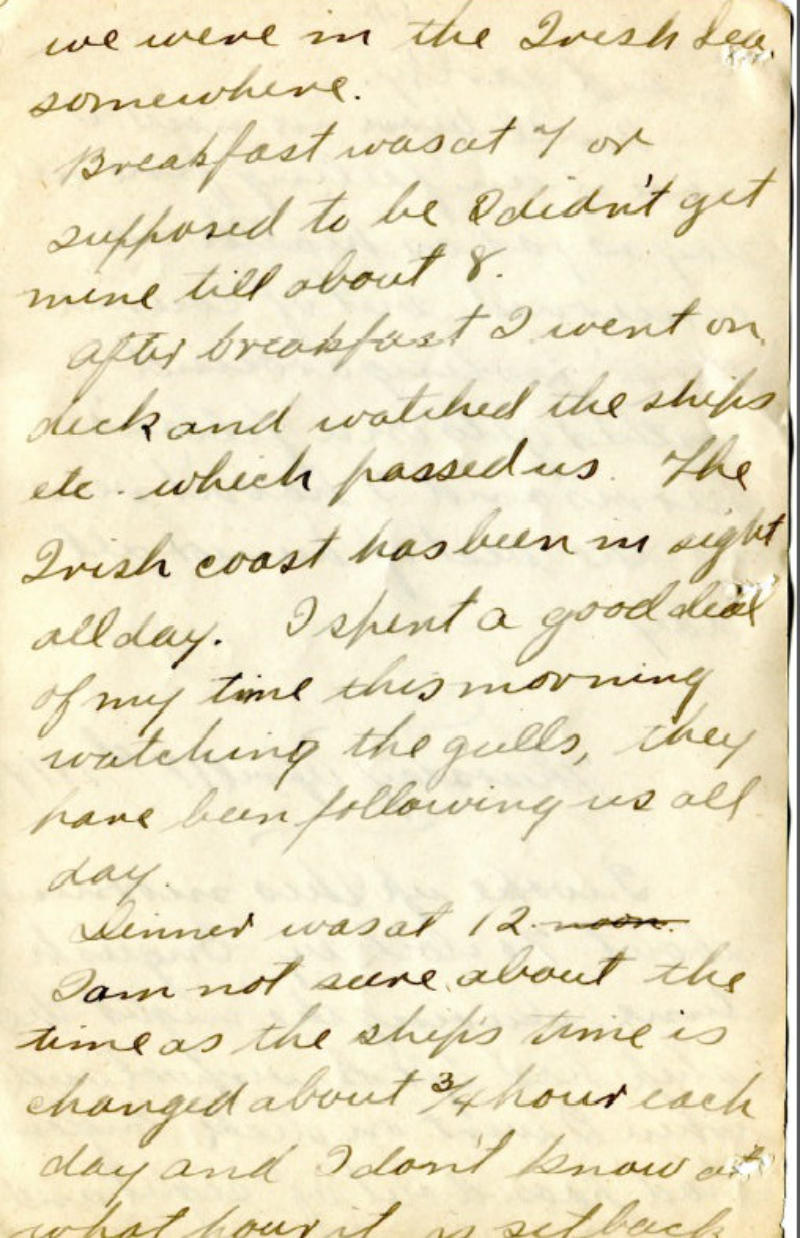 we were in the Irish Sea
somewhere.
Breakfast was at 7 or
supposed to be I didn't get
mine till about 8.
After breakfast I went on
deck and watched the ships
etc. which passed us. The
Irish coast has been in sight
all day. I spent a good deal
of my time this morning
watching the gulls, they
have been following us all
day.
Dinner was at 12 noon.
I am not sure about the
time as the ship's time is
changed about 3/4 hour each
day and I don't know at
what hour it is set back